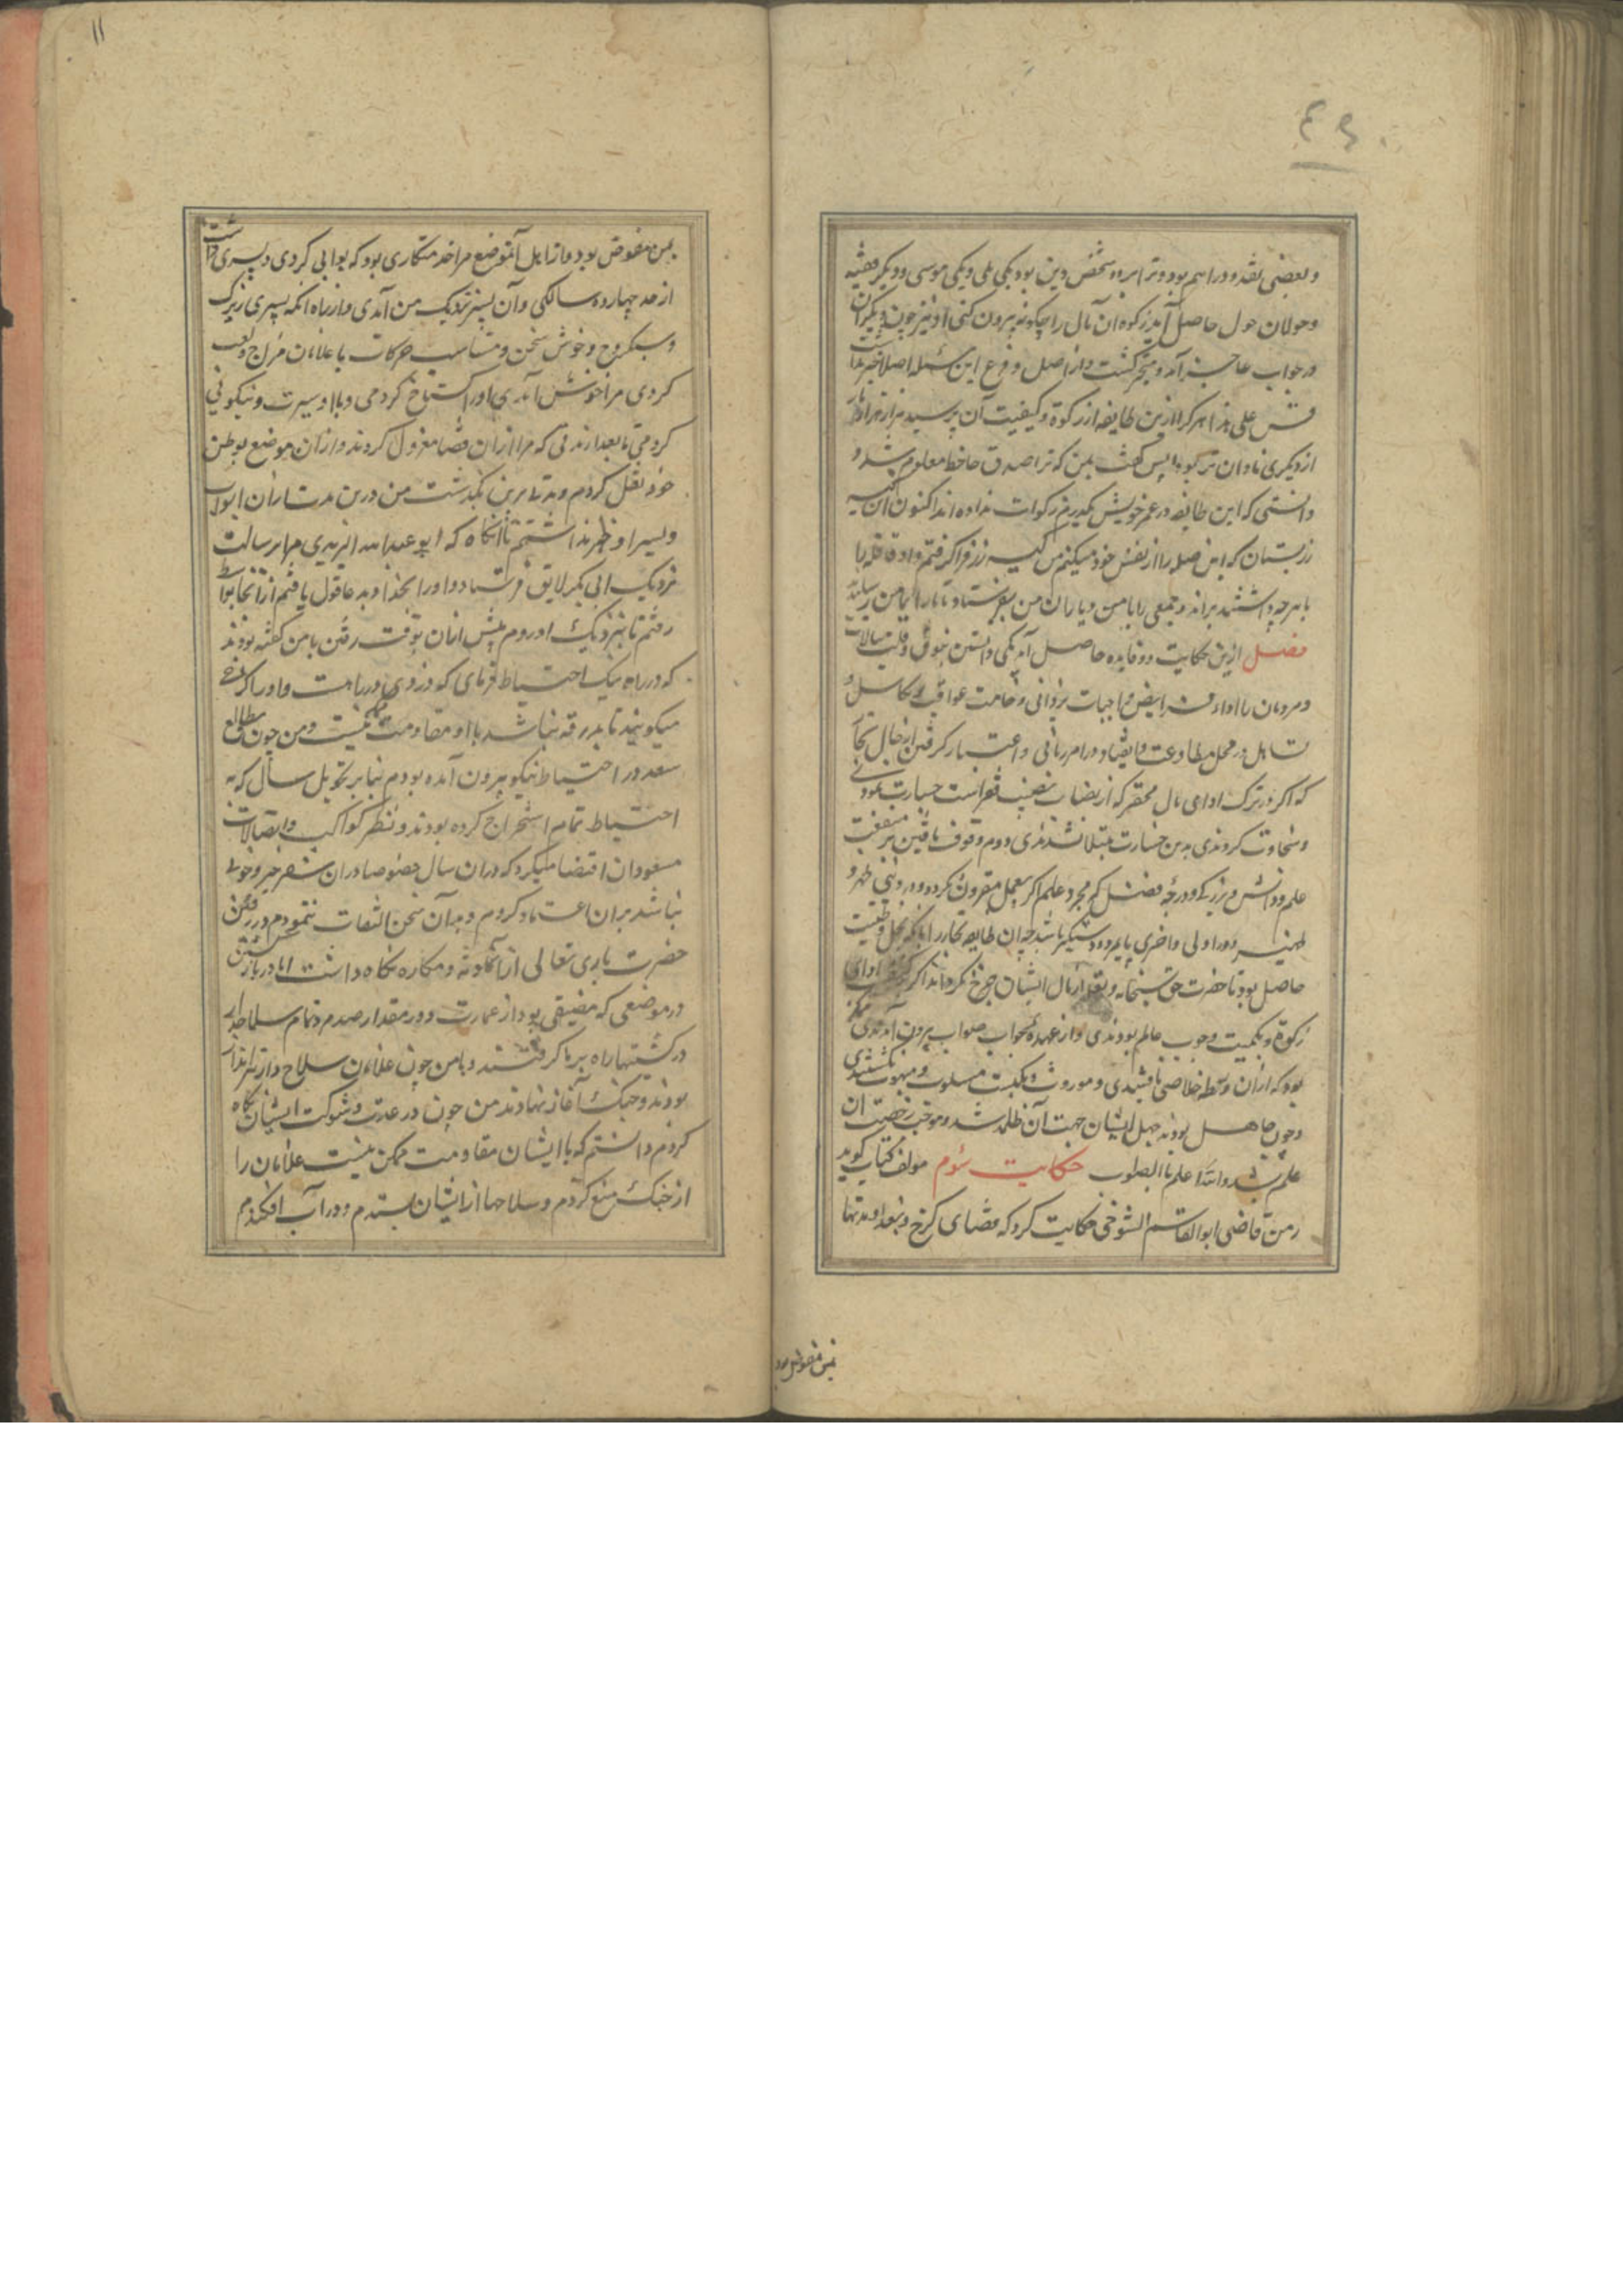 و بعضی نقد و دراهم بود و ترا بر ده شخص دین بود یکی ملی و یکی موسی و دیگر
و حولان حول حاصل آید زکوة ان مال را چکونه بیرون کنی او نیز چون دیکران
در جواب عاجز آمد و متحیر کشت و از اصل و فرع این مسئله اصلا خبر نداشت
قس علی هذا هر کرا ازین طایفه از زکوة و کیفیت آن پرسید
از دیکری نادان تر بود پس کفت بمن که ترا صدق جاحظ معلوم شد و
دانستی که این طایفه در عمر خویش یکدرم زکوات نداده اند اکنون این کیسه
زر بستان که این صله را از نفس خود میکنم من کیسه زر فرا کرفتم و او قافله را
با هرچه داشتند براند و جمعی را با من و یاران من بفرستاد تا ما را بمامن رسانید
فصل ازین حکایت دو فایده حاصل آمد یکی دانستن
و مردمان با اداء فرایض و واجبات یزدانی و خامت عواقب تکاسل و
تساهل در محل مطاوعت و انقیاد در امر ربانی و اعتبار کرفتن از حال تجار
که اکر در ترک ادای مال محقر که از نصاب نصیب فقراست جسارت ننمودندی
و سخاوت کردندی بدین خسارت مبتلا نشدندی دوم وقوف یافتن بر منفعت
علم و دانش و بزرکی و درجه فضل که مجرد علم اکر بعمل مقرون نکردد
در اولی و اخری پایمرد و دستکیر باشد چه ان طایفه تجار را با آنکه بخل و خبیثت
حاصل بود تا حضرت حق سبحانه و تعالی از مال ایشان خرج نکرداند اکر بکیفیت ادای
زکوة و بکمیت وجوب عالم بودندی و از عهده جواب صواب بیرون آمدندی ممکن
بود که از آن ورطه خلاصی یافتندی و موروث و مکتسب مسلوب و منهوب نکشتندی
و چون جاهل بودند جهل ایشان جهت آن ظلمه شد و موجب رخصت ان
علم شد والله اعلم بالصواب حکایت سوم مولف کتاب کوید
زمن قاضی ابوالقاسم التنوخی حکایت کرد که قضای کرخ و بغداد مدتها
بمن مفوض بود
11
بمن مفوض بود و از اهل آنموضع مرا خدمتکاری بود که بوابی کردی و پسری داشت
از حد چهارده سالکی و آن پسر نزدیک من آمدی و از راه آنکه پسری زیرک
و سبکروح و خوش سخن و متناسب حرکات با غلامان مزاح و لعب
کردی مرا خوش آمدی او را کستاخ کردمی و با او سیرت و نیکوئی
کردمی تا بعد از مدتی که مرا از ان قضا معزول کردند و از آن موضع بوطن
خود نقل کردم و مدتی برین بکذشت من درین مدت از ان بواب
و پسر او خبر نداشتم تا آنکاه که ابو عبدالله البریدی مرا برسالت
نزدیک ابی بکر لایق فرستاد و او را بحد اوبه عاقول یافتم از آنجا بواسط
رفتم تا بنزدیک او روم پیش از ان بوقت رفتن با من کفته بودند
که در راه نیک احتیاط فرمای که دزدی در راهست و او را کرخی
میکویند تا بدرقه نباشد با او مقاومت ممکن نیست و من چون بطالع
سعد در احتیاط نیکو بیرون آمده بودم بنابر تحویل سال که به
احتیاط تمام استخراج کرده بودند و نظر کواکب و اتصالات
مسعودان اقتضا میکرد که دران سال خصوصا دران سفر جز خوبی
نباشد بران اعتماد کردم و بدان سخن التفات ننمودم در رفتن
حضرت باری تعالی از آنحادثه و مکاره نکاه داشت اما در باز کشتن
در موضعی که مضیقی بود از عمارت دور مقدار صد مرد تمام سلاح دار
در کشتیها راه بر ما کرفتند و با من چون غلامان سلاح دار تیرانداز
بودند و جنک آغاز نهادند من چون در عدت و شوکت ایشان نکاه
کردم دانستم که با ایشان مقاومت ممکن نیست غلامان را
از جنک منع کردم و سلاحها از ایشان بستدم و در آب افکندم